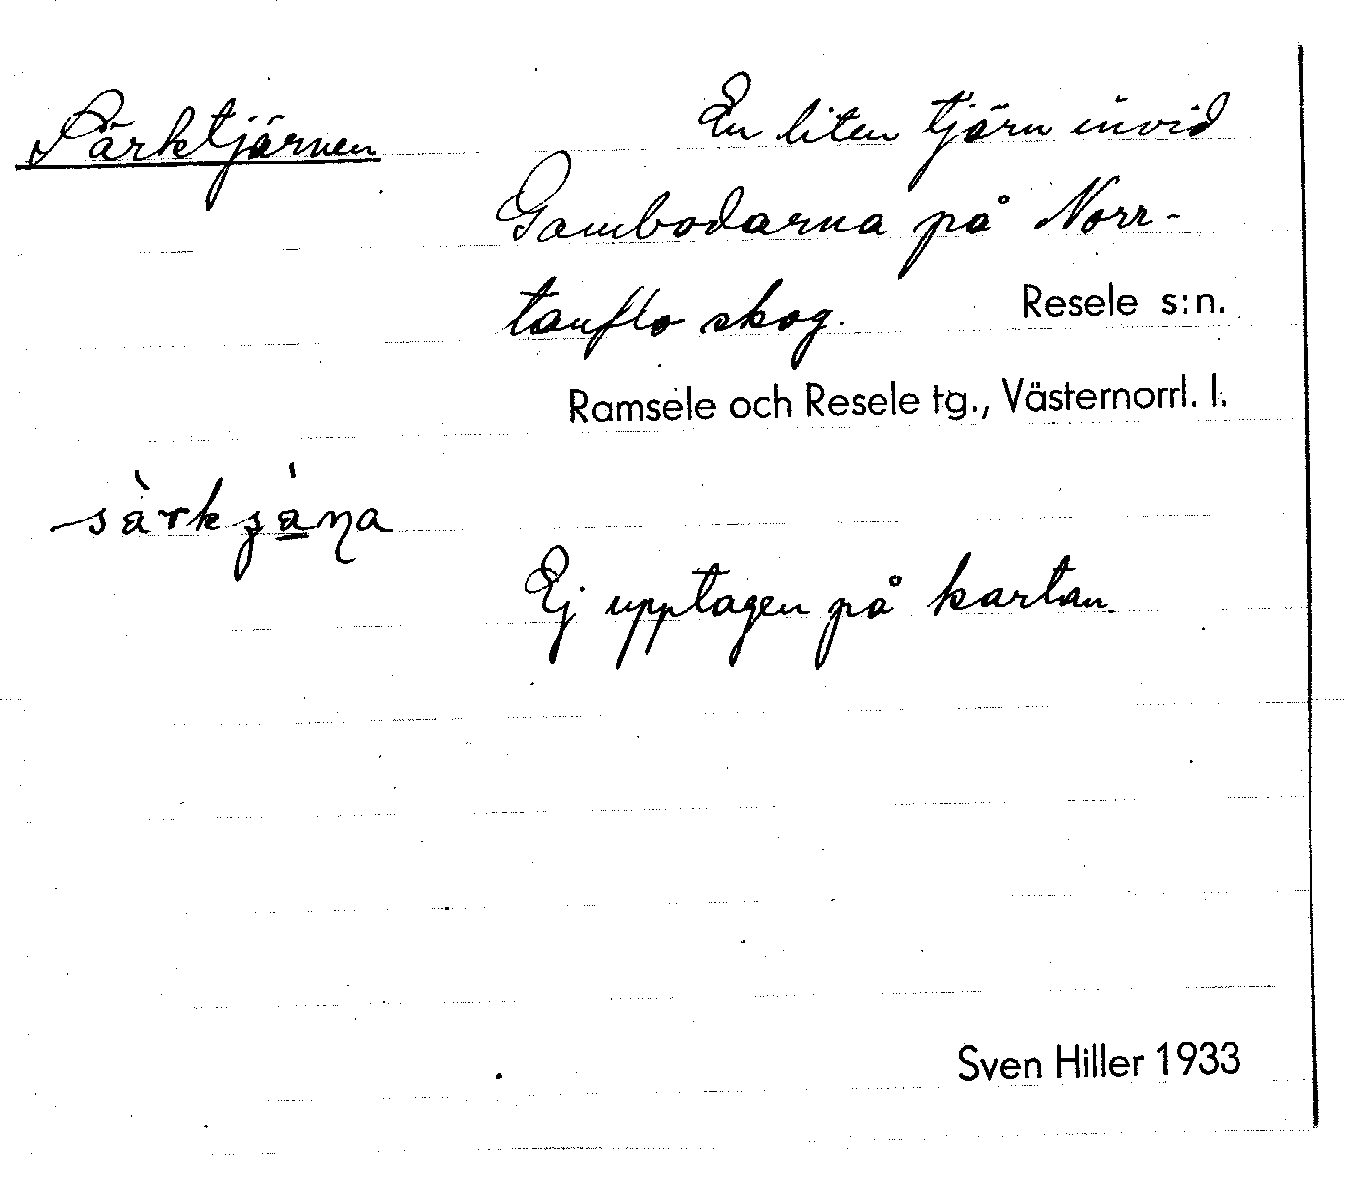 Särktjärnen
En liten tjärn invid
Gambodarna på Norr-
tanflo skog.
Resele s:n.
Ramsele och Resele tg., Västernorrl. l.
Ej upptagen på kartan.
Sven Hiller 1933